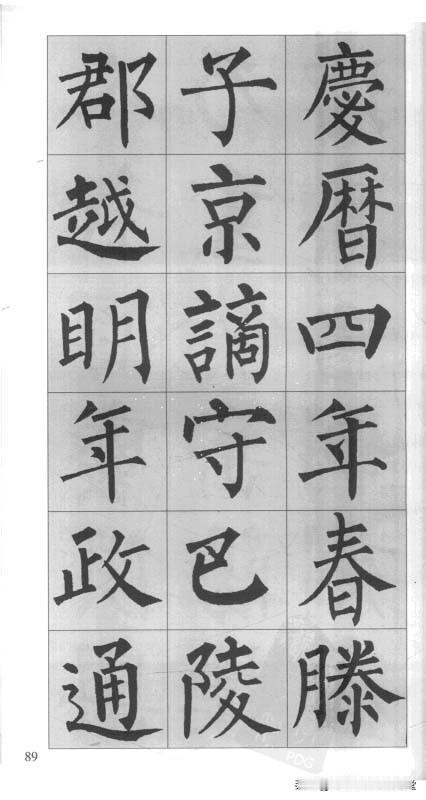 慶暦四年春滕
子京謫守巴陵
郡越明年政通
89